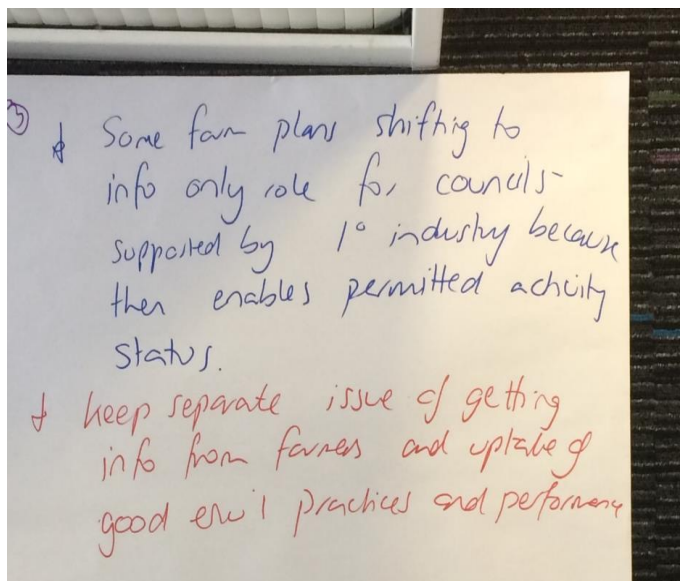 ③
↓ Some farm plans shifting to
info only role for councils-
supported by 1° industry because
then enables permitted activity
status.
↓ keep separate issue of getting
info from farmers and uptake of
good env'l practices and performance